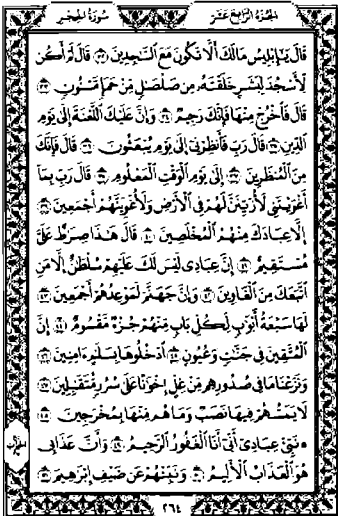 الجزء الرابع عشر سورة الحجر
قَالَ يَٰٓإِبْلِيسُ مَا لَكَ أَلَّا تَكُونَ مَعَ ٱلسَّٰجِدِينَ ٣٢ قَالَ لَمْ أَكُن
لِّأَسْجُدَ لِبَشَرٍ خَلَقْتَهُۥ مِن صَلْصَٰلٍ مِّنْ حَمَإٍ مَّسْنُونٍ ٣٣
قَالَ فَٱخْرُجْ مِنْهَا فَإِنَّكَ رَجِيمٌ ٣٤ وَإِنَّ عَلَيْكَ ٱللَّعْنَةَ إِلَىٰ يَوْمِ
ٱلدِّينِ ٣٥ قَالَ رَبِّ فَأَنظِرْنِىٓ إِلَىٰ يَوْمِ يُبْعَثُونَ ٣٦ قَالَ فَإِنَّكَ
مِنَ ٱلْمُنظَرِينَ ٣٧ إِلَىٰ يَوْمِ ٱلْوَقْتِ ٱلْمَعْلُومِ ٣٨ قَالَ رَبِّ بِمَآ
أَغْوَيْتَنِى لَأُزَيِّنَنَّ لَهُمْ فِى ٱلْأَرْضِ وَلَأُغْوِيَنَّهُمْ أَجْمَعِينَ ٣٩
إِلَّا عِبَادَكَ مِنْهُمُ ٱلْمُخْلَصِينَ ٤٠ قَالَ هَٰذَا صِرَٰطٌ عَلَىَّ
مُسْتَقِيمٌ ٤١ إِنَّ عِبَادِى لَيْسَ لَكَ عَلَيْهِمْ سُلْطَٰنٌ إِلَّا مَنِ
ٱتَّبَعَكَ مِنَ ٱلْغَاوِينَ ٤٢ وَإِنَّ جَهَنَّمَ لَمَوْعِدُهُمْ أَجْمَعِينَ ٤٣
لَهَا سَبْعَةُ أَبْوَٰبٍ لِّكُلِّ بَابٍ مِّنْهُمْ جُزْءٌ مَّقْسُومٌ ٤٤ إِنَّ
ٱلْمُتَّقِينَ فِى جَنَّٰتٍ وَعُيُونٍ ٤٥ ٱدْخُلُوهَا بِسَلَٰمٍ ءَامِنِينَ ٤٦
وَنَزَعْنَا مَا فِى صُدُورِهِم مِّنْ غِلٍّ إِخْوَٰنًا عَلَىٰ سُرُرٍ مُّتَقَٰبِلِينَ ٤٧
لَا يَمَسُّهُمْ فِيهَا نَصَبٌ وَمَا هُم مِّنْهَا بِمُخْرَجِينَ ٤٨
۞ نَبِّئْ عِبَادِىٓ أَنِّىٓ أَنَا ٱلْغَفُورُ ٱلرَّحِيمُ ٤٩ وَأَنَّ عَذَابِى
هُوَ ٱلْعَذَابُ ٱلْأَلِيمُ ٥٠ وَنَبِّئْهُمْ عَن ضَيْفِ إِبْرَٰهِيمَ ٥١
٢٦٤